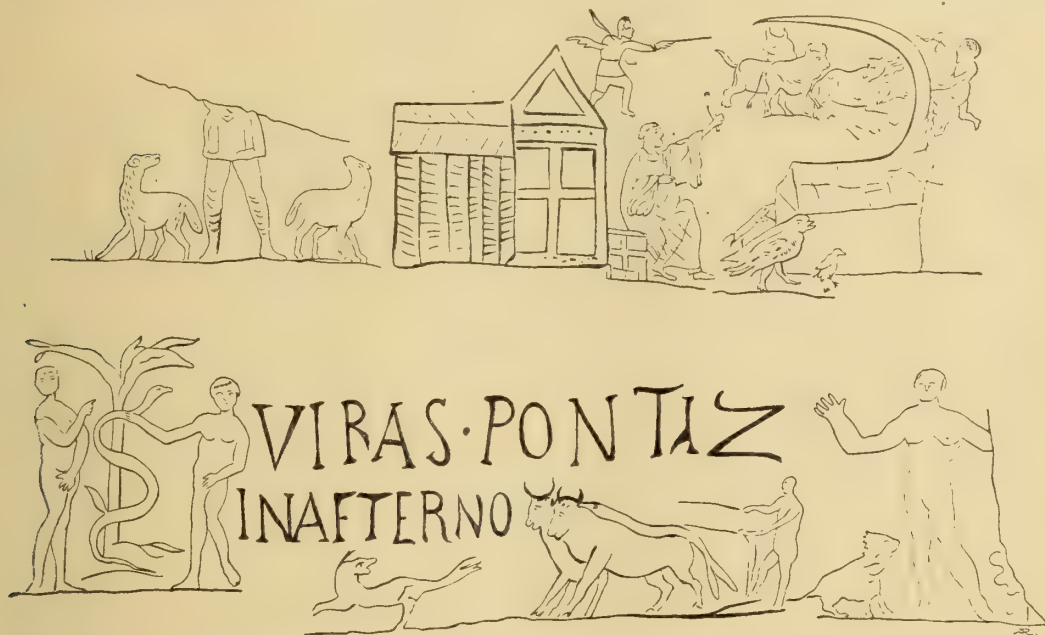 VIRAS·PONTIAZ
INAFTERNO